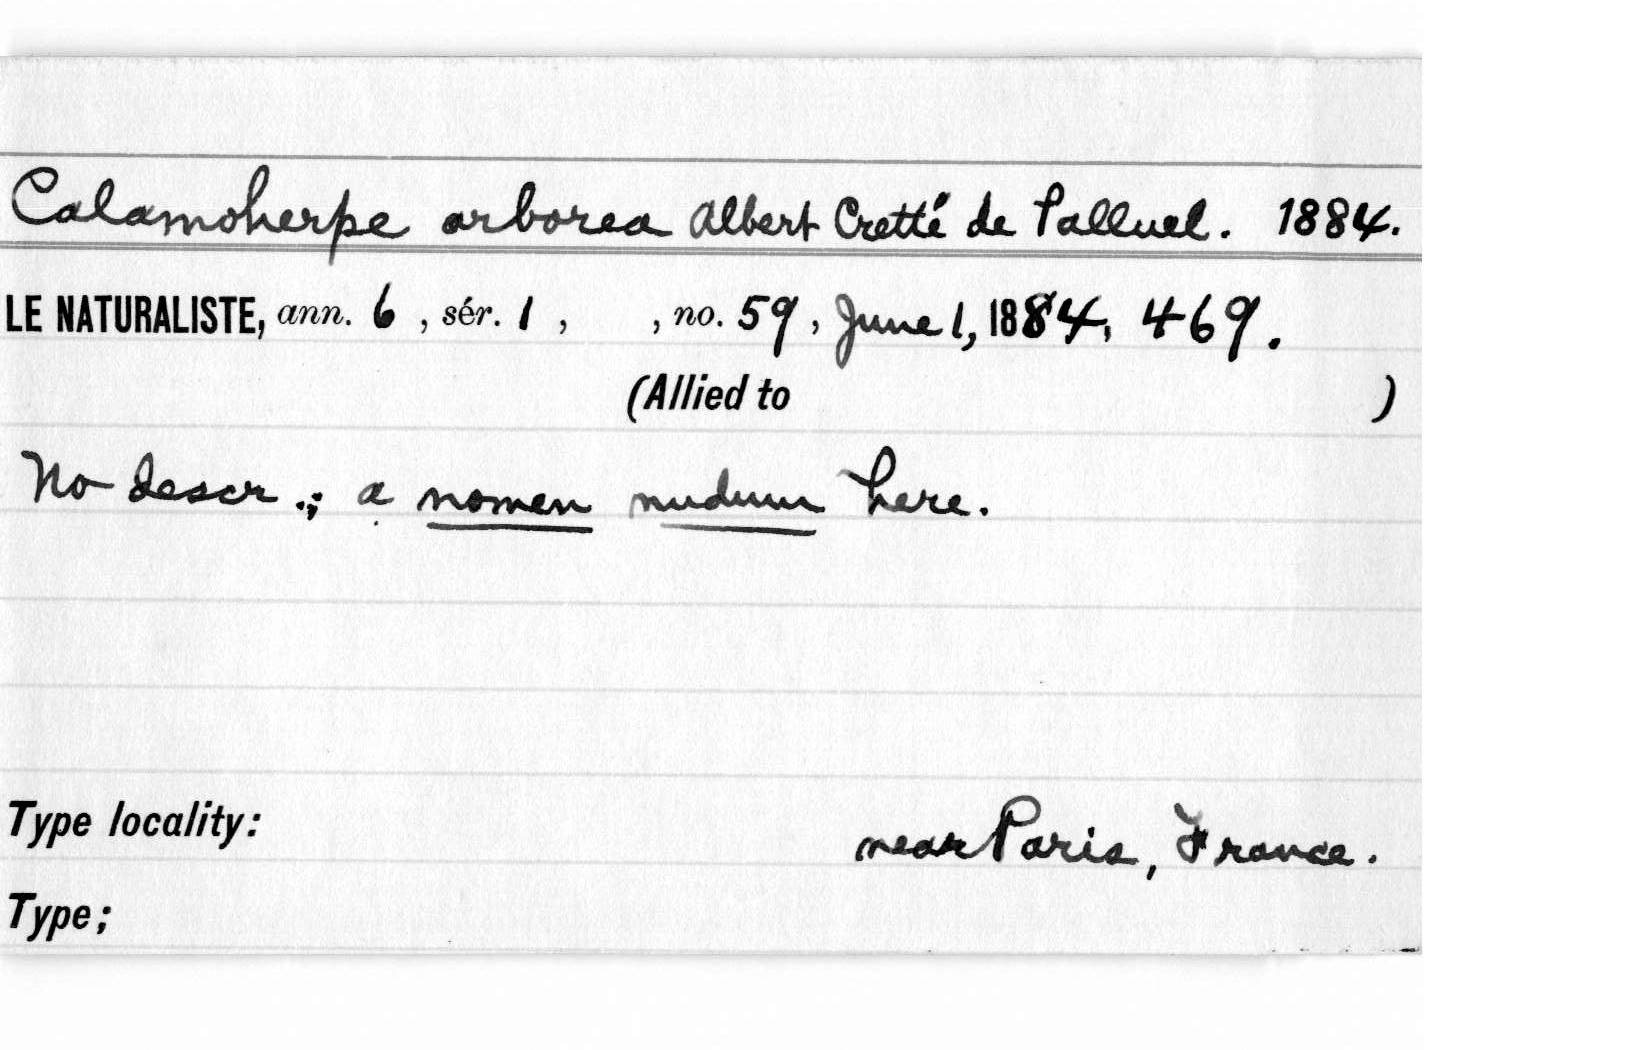 Calamoherpe arborea Albert Cretté de Palluel. 1884.
LE NATURALISTE, ann. 6 , sér. 1 , , no. 59 , June 1, 1884, 469.
(Allied to )
No descr.; a nomen nudum here.
Type locality: near Paris, France.
Type;